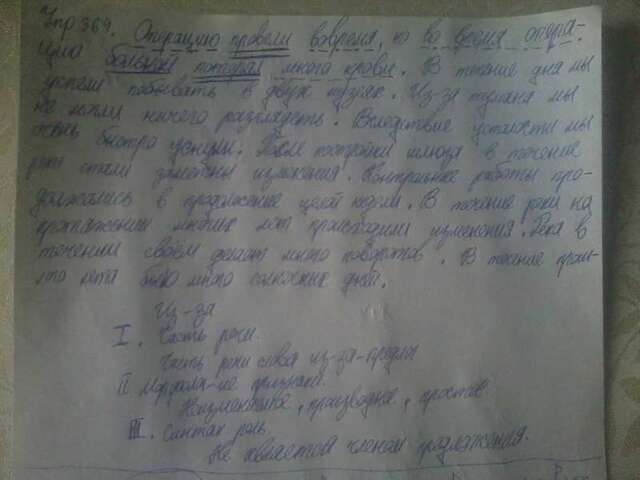 Упр 369. Операцию провели вовремя, но во время опера-
цию больной потерял много крови. В течение дня мы
успели побывать в двух музеях. Из-за тумана мы
не могли ничего разглядеть. Вследствие усталости мы
очень быстра уснули. После постройки шлюза в течение
реки стали заметны изменения. Контрольные работы про-
должались в продолжение целой недели. В течение реки на
протяжении многих лет происходили изменения. Река в
течении своём делает много поворотов. В течение прош-
лого лета было много солнечных дней.
Из-за
I. Часть речи.
Часть речи слова из-за-предлог
II признаки.
Неизменяемое, производное, простое
III. Синтак роль.
Не является членом предложения.